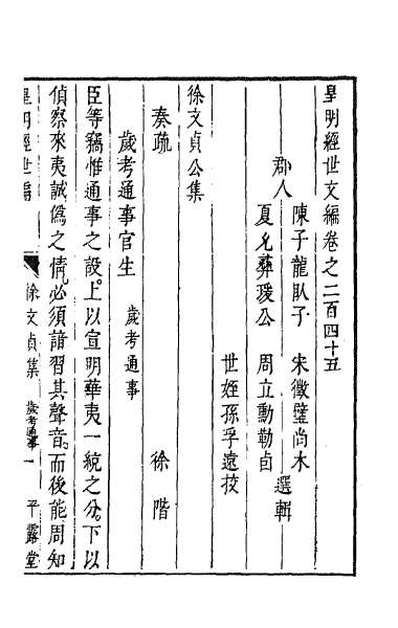 皇明經世文編卷之二百四十五
陳子龍臥子 宋徵璧尚木
郡人 選輯
夏允彝瑗公 周立勳勒卣
世姪孫孚遠挍
徐文貞公集
奏疏 徐階
歲考通事官生 歲考通事
臣等竊惟通事之設。上以宣明華夷一統之分。下以
偵察來夷誠偽之情。必須諳習其聲音。而後能周知
皇明經世編 徐文貞集 歲考通事 一 平露堂